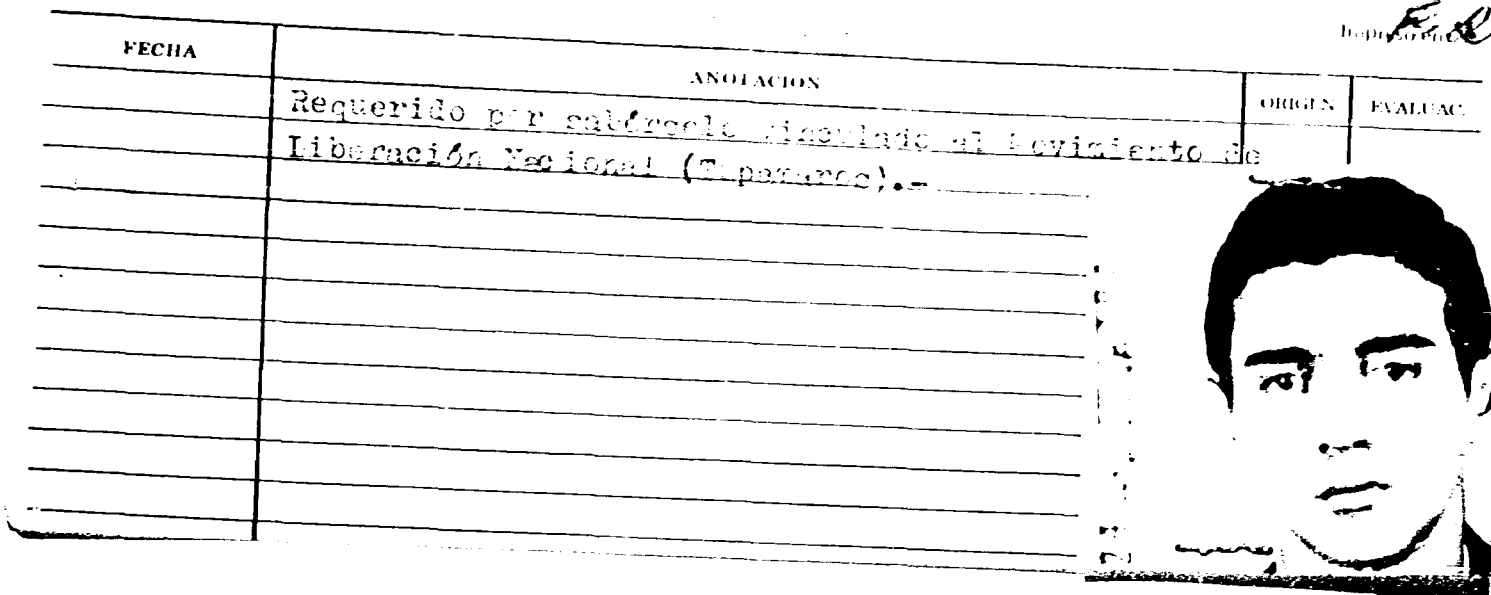 FECHA
ANOTACION
ORIGEN
EVALUAC.
Requerido por sabérsele vinculado al Movimiento de
Liberación Nacional (Tupamaros).-